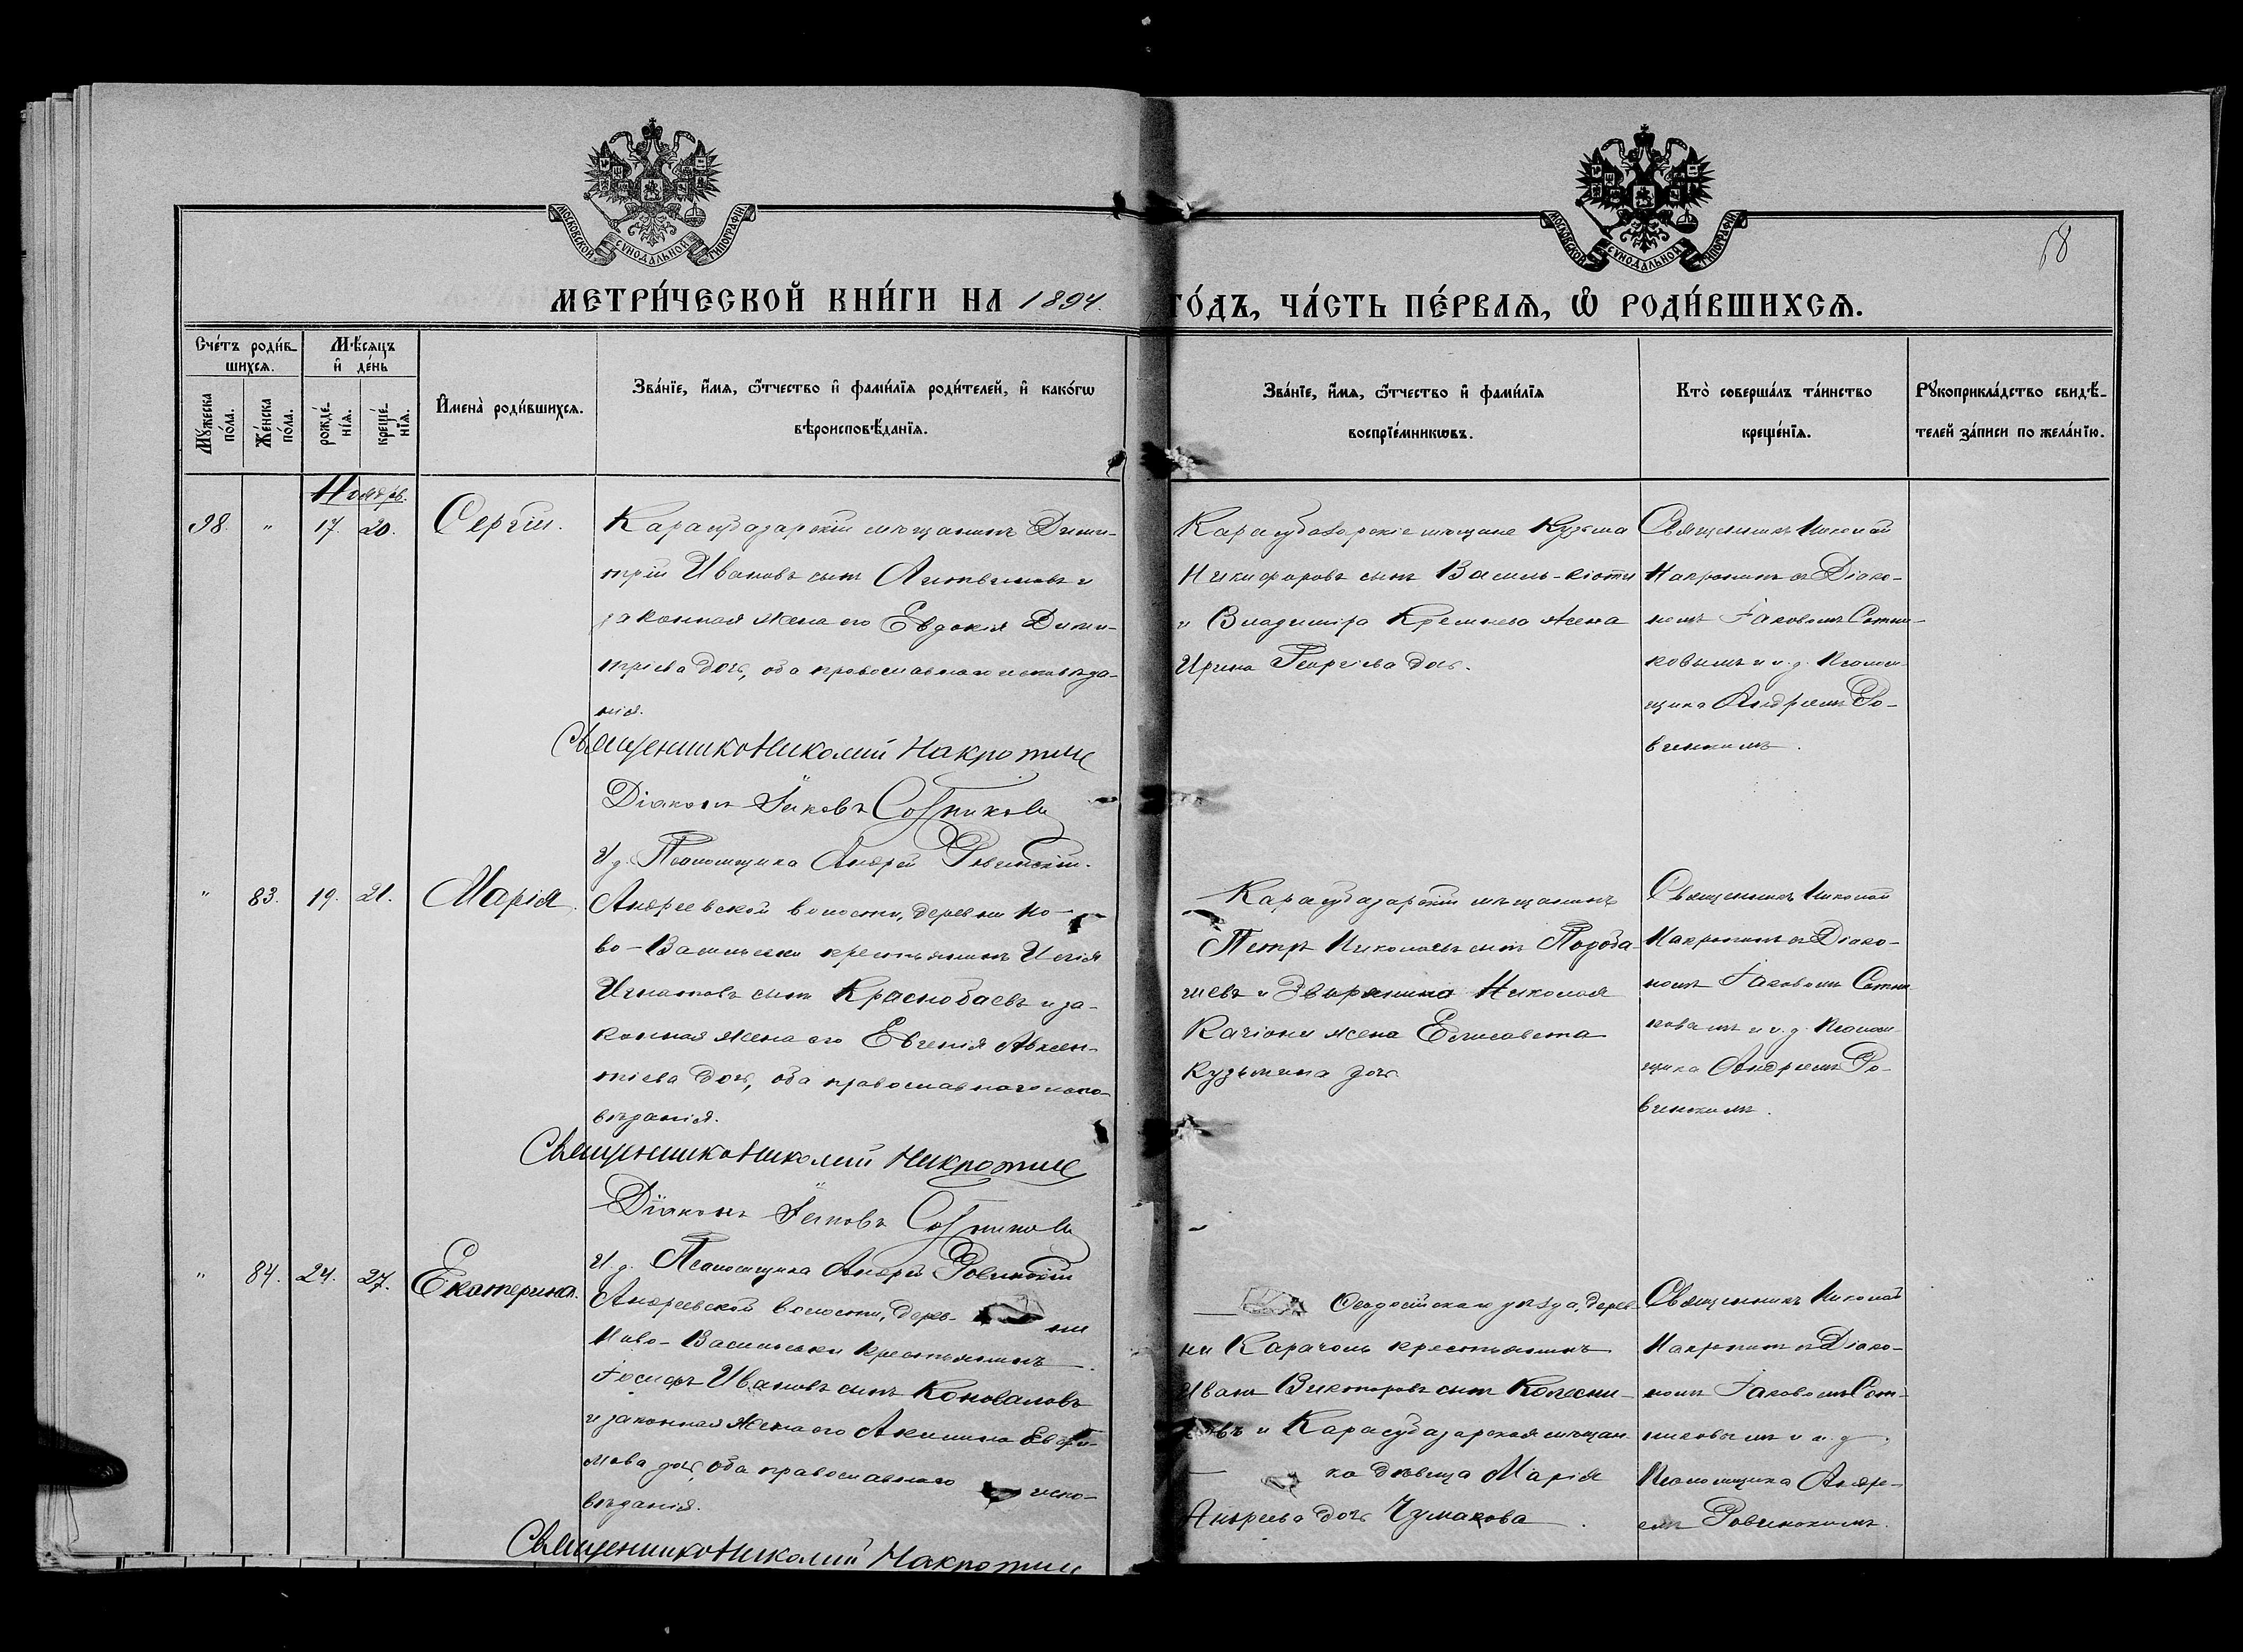 МОСКОВСКОЙ СѴНОДАЛЬНОЙ ТИПОГРАФІИ.
МОСКОВСКОЙ СѴНОДАЛЬНОЙ ТИПОГРАФІИ.
68
МЕТРИ́ЧЕСКОЙ КНИ́ГИ НА 1894.
ГО́ДЪ, ЧА́СТЬ ПЕ́РВАѦ, Ѡ РОДИ́ВШИХСѦ.
Сче́тъ роди́в-
шихсѧ.
Мꙋ́жеска
по́ла.
Же́нска
по́ла.
Мѣ́сѧцъ
и҆ де́нь
рожде́-
нїѧ.
креще́-
нїѧ.
И҆мена̀ роди́вшихсѧ.
Зва́нїе, и҆́мѧ, ѻ҆́тчество и҆ фами́лїѧ роди́телей, и҆ како́гѡ
вѣроисповѣ́данїѧ.
Зва́нїе, и҆́мѧ, ѻ҆́тчество и҆ фами́лїѧ
воспрїе́мникѡвъ.
Кто̀ соверша́лъ та́инство
креще́нїѧ.
Рꙋкоприкла́дство свидѣ́-
телей за́писи по жела́нїю.
Ноябрь.
98. " 17. 20. Сергій.
Карасубазарскій мѣщанинъ Дими-
трій Ивановъ сынъ Литвиновъ и
законная жена его Евдокія Дими-
тріева дочь, оба православнаго исповѣда-
нія.
Священникъ Николай Накропинъ
Діаконъ Іаковъ Сотниковъ
И д. Псаломщика Андрей Ровинскій.
Карасубазарскіе мѣщане Кузьма
Никифоровъ сынъ Василь-кіоти
и Владиміра Кремнева жена
Ирина Георгіева дочь.
Священникъ Николай
Накропинъ съ Діако-
номъ Іаковомъ Сотни-
ковымъ и и. д. Псалом-
щика Андреемъ Ро-
винскимъ.
" 83. 19. 21. Марія.
Андреевской волости, деревни Но-
во-Васильевки крестьянинъ Илія
Игнатовъ сынъ Краснобаевъ и за-
конная жена его Евгенія Авксен-
тіева дочь, оба православнаго испо-
вѣданія.
Священникъ Николай Накропинъ
Діаконъ Іаковъ Сотниковъ
И д. Псаломщика Андрей Ровинскій
Карасубазарскій мѣщанинъ
Петръ Николаевъ сынъ
и Дворянина Николая
Качіони жена Елисавета
Кузьмина дочь
Священникъ Николай
Накропинъ съ Діако-
номъ Іаковомъ Сотни
ковымъ и и. д. Псалом
щика Андреемъ Ро-
винскимъ.
" 84. 24. 27. Екатерина.
Андреевской волости, дерев- ни
Ново-Васильевки крестьянинъ
Іосифъ Ивановъ сынъ Коноваловъ
и законная жена его Акилина Евфи-
мова дочь, оба православнаго испо-
вѣданія.
Священникъ Николай Накропинъ
Ѳеодосійскаго уѣзда, дерев-
ни Карачоль крестьянинъ
Иванъ Викторовъ сынъ Колесни-
ковъ и Карасубазарская мѣщан-
ка дѣвица Марія
Андреева дочь Чумакова
Священникъ Николай
Накропинъ съ Діако-
номъ Іаковомъ Сот-
никовымъ и и. д.
Псаломщика Андре-
емъ Ровинскимъ.